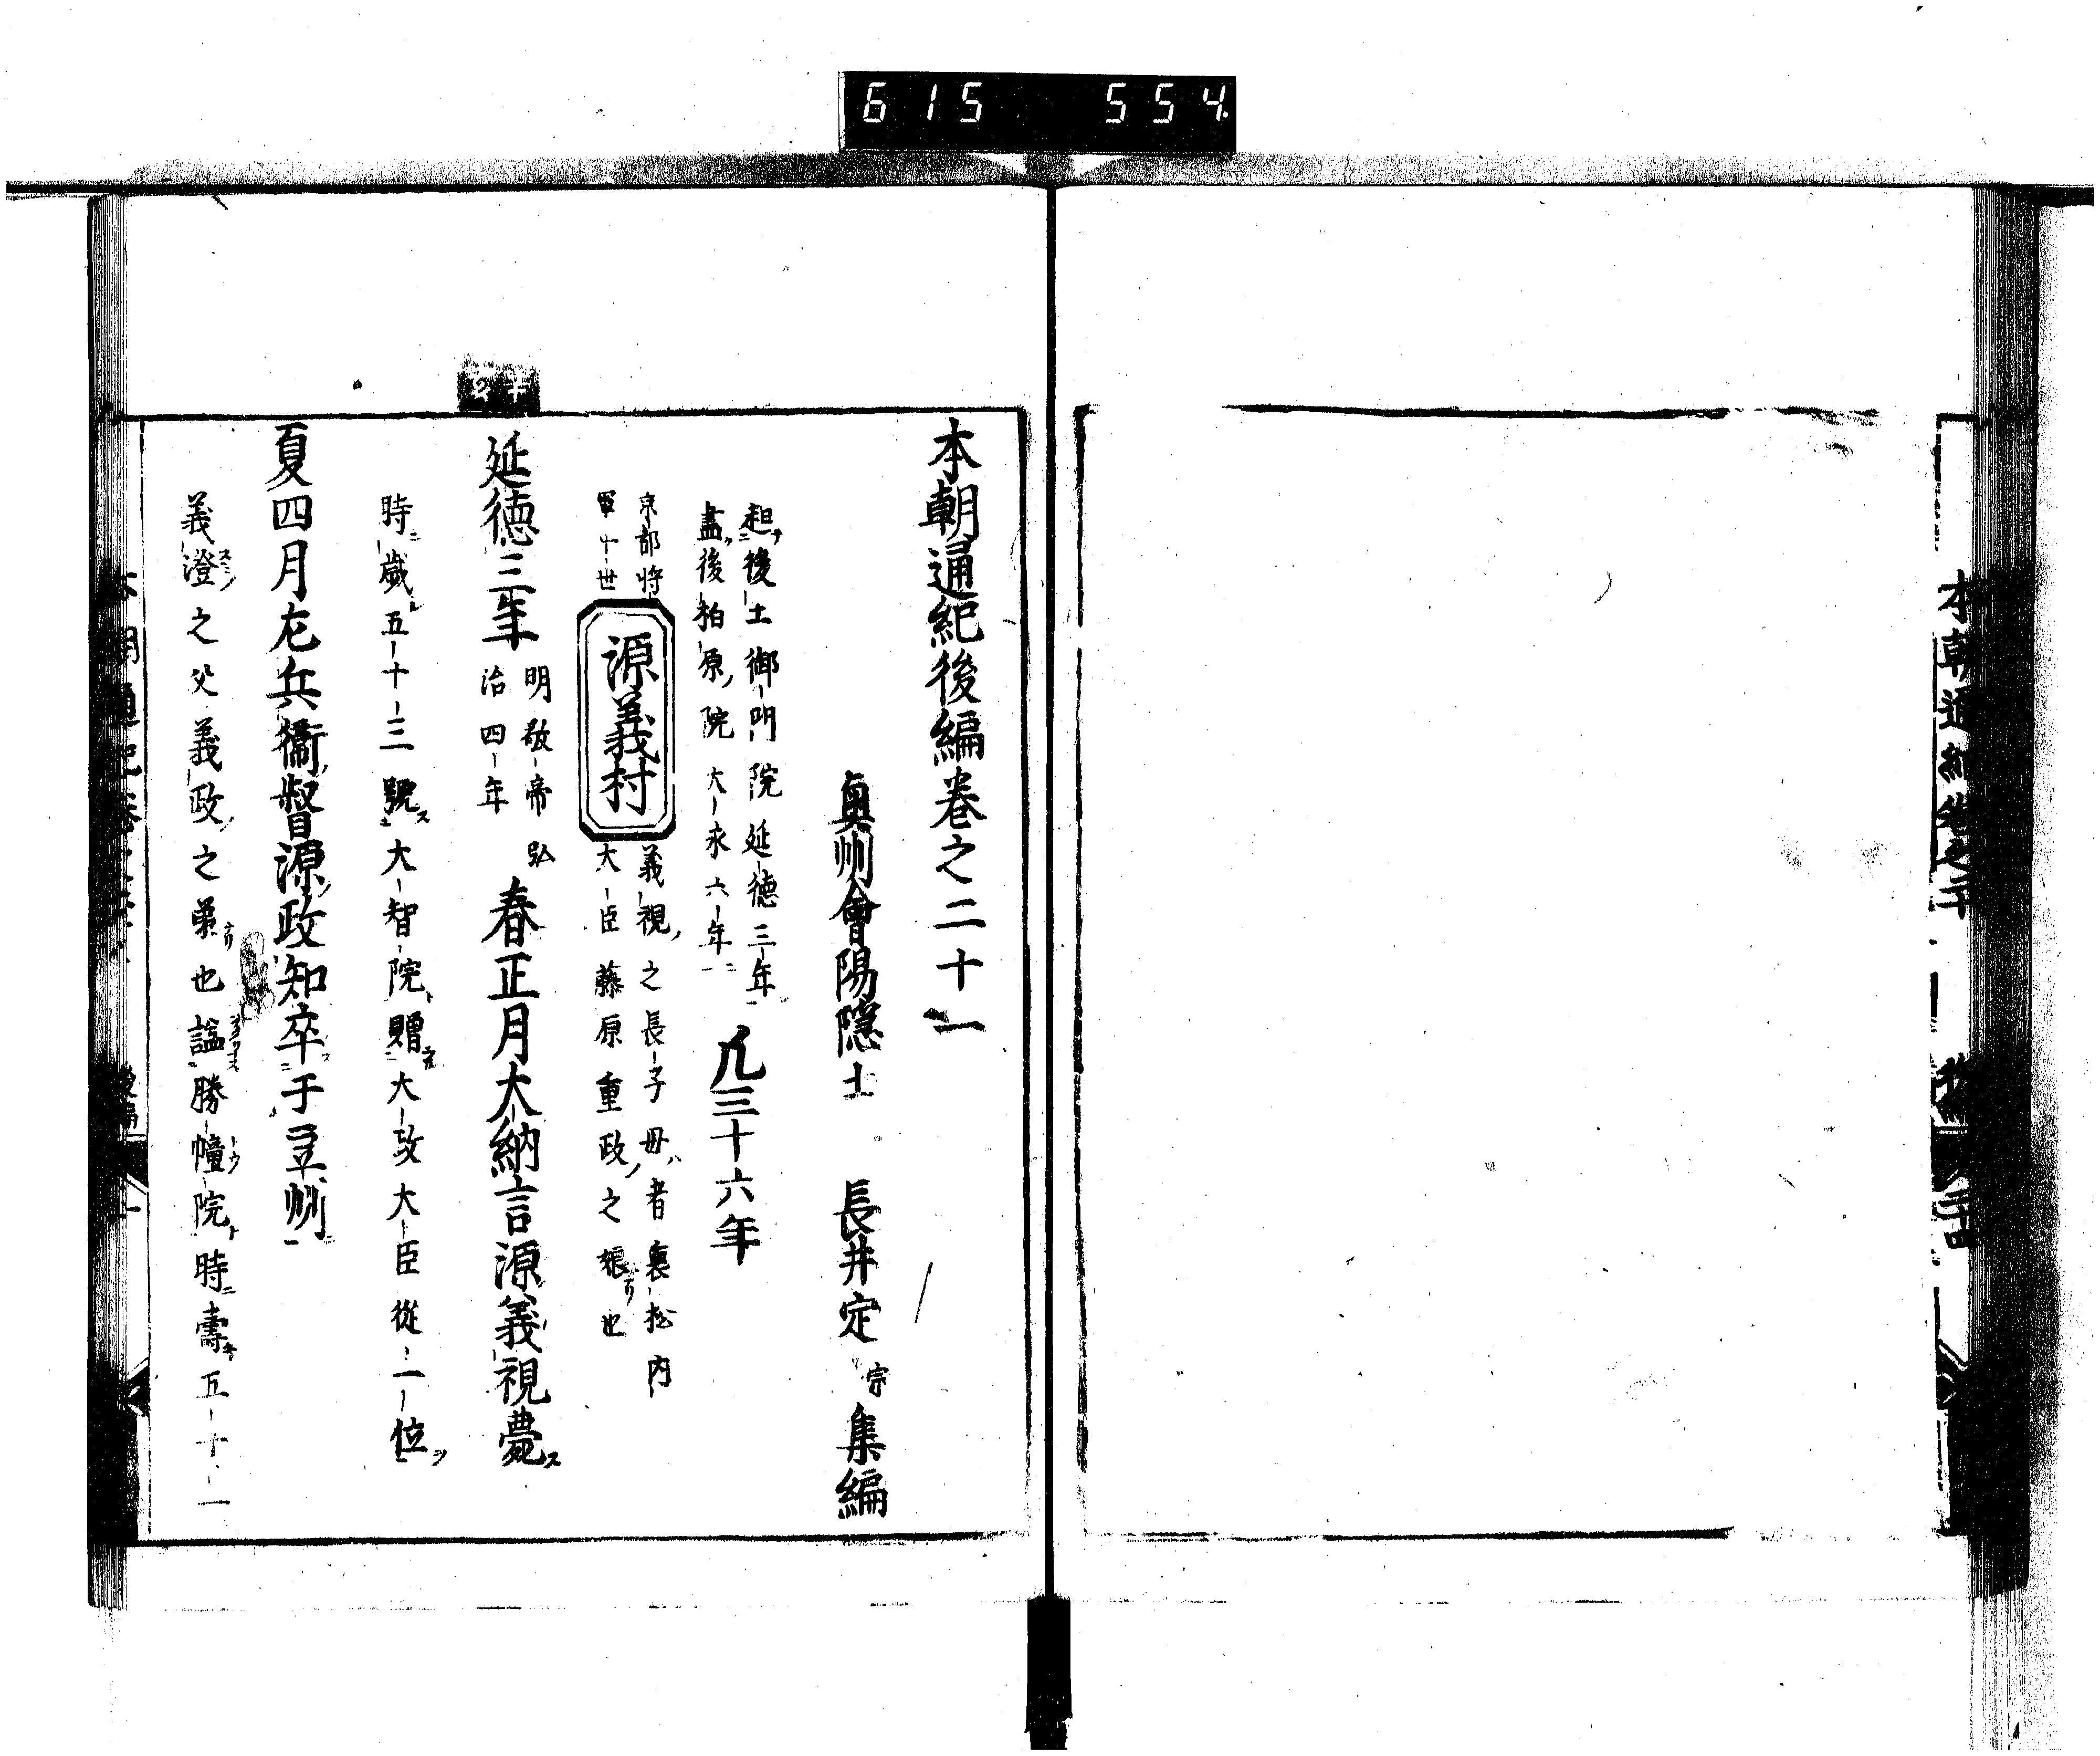 615 554
本朝通紀後編卷之二十一
奧州會陽隱士 長井定宗集編
起後土御門院延德三年
盡後柏原院大永六年
凡三十六年
京都將
軍十世
源義村
義視之長子母者裏松內
大臣藤原重政之娘也
延德三年
明敬帝弘
治四年
春正月大納言源義視薨
時歲五十三號大智院贈大政大臣從一位
夏四月左兵衞督源政知卒于豆州
義澄之父義政之弟也諡勝幢院時壽五十一